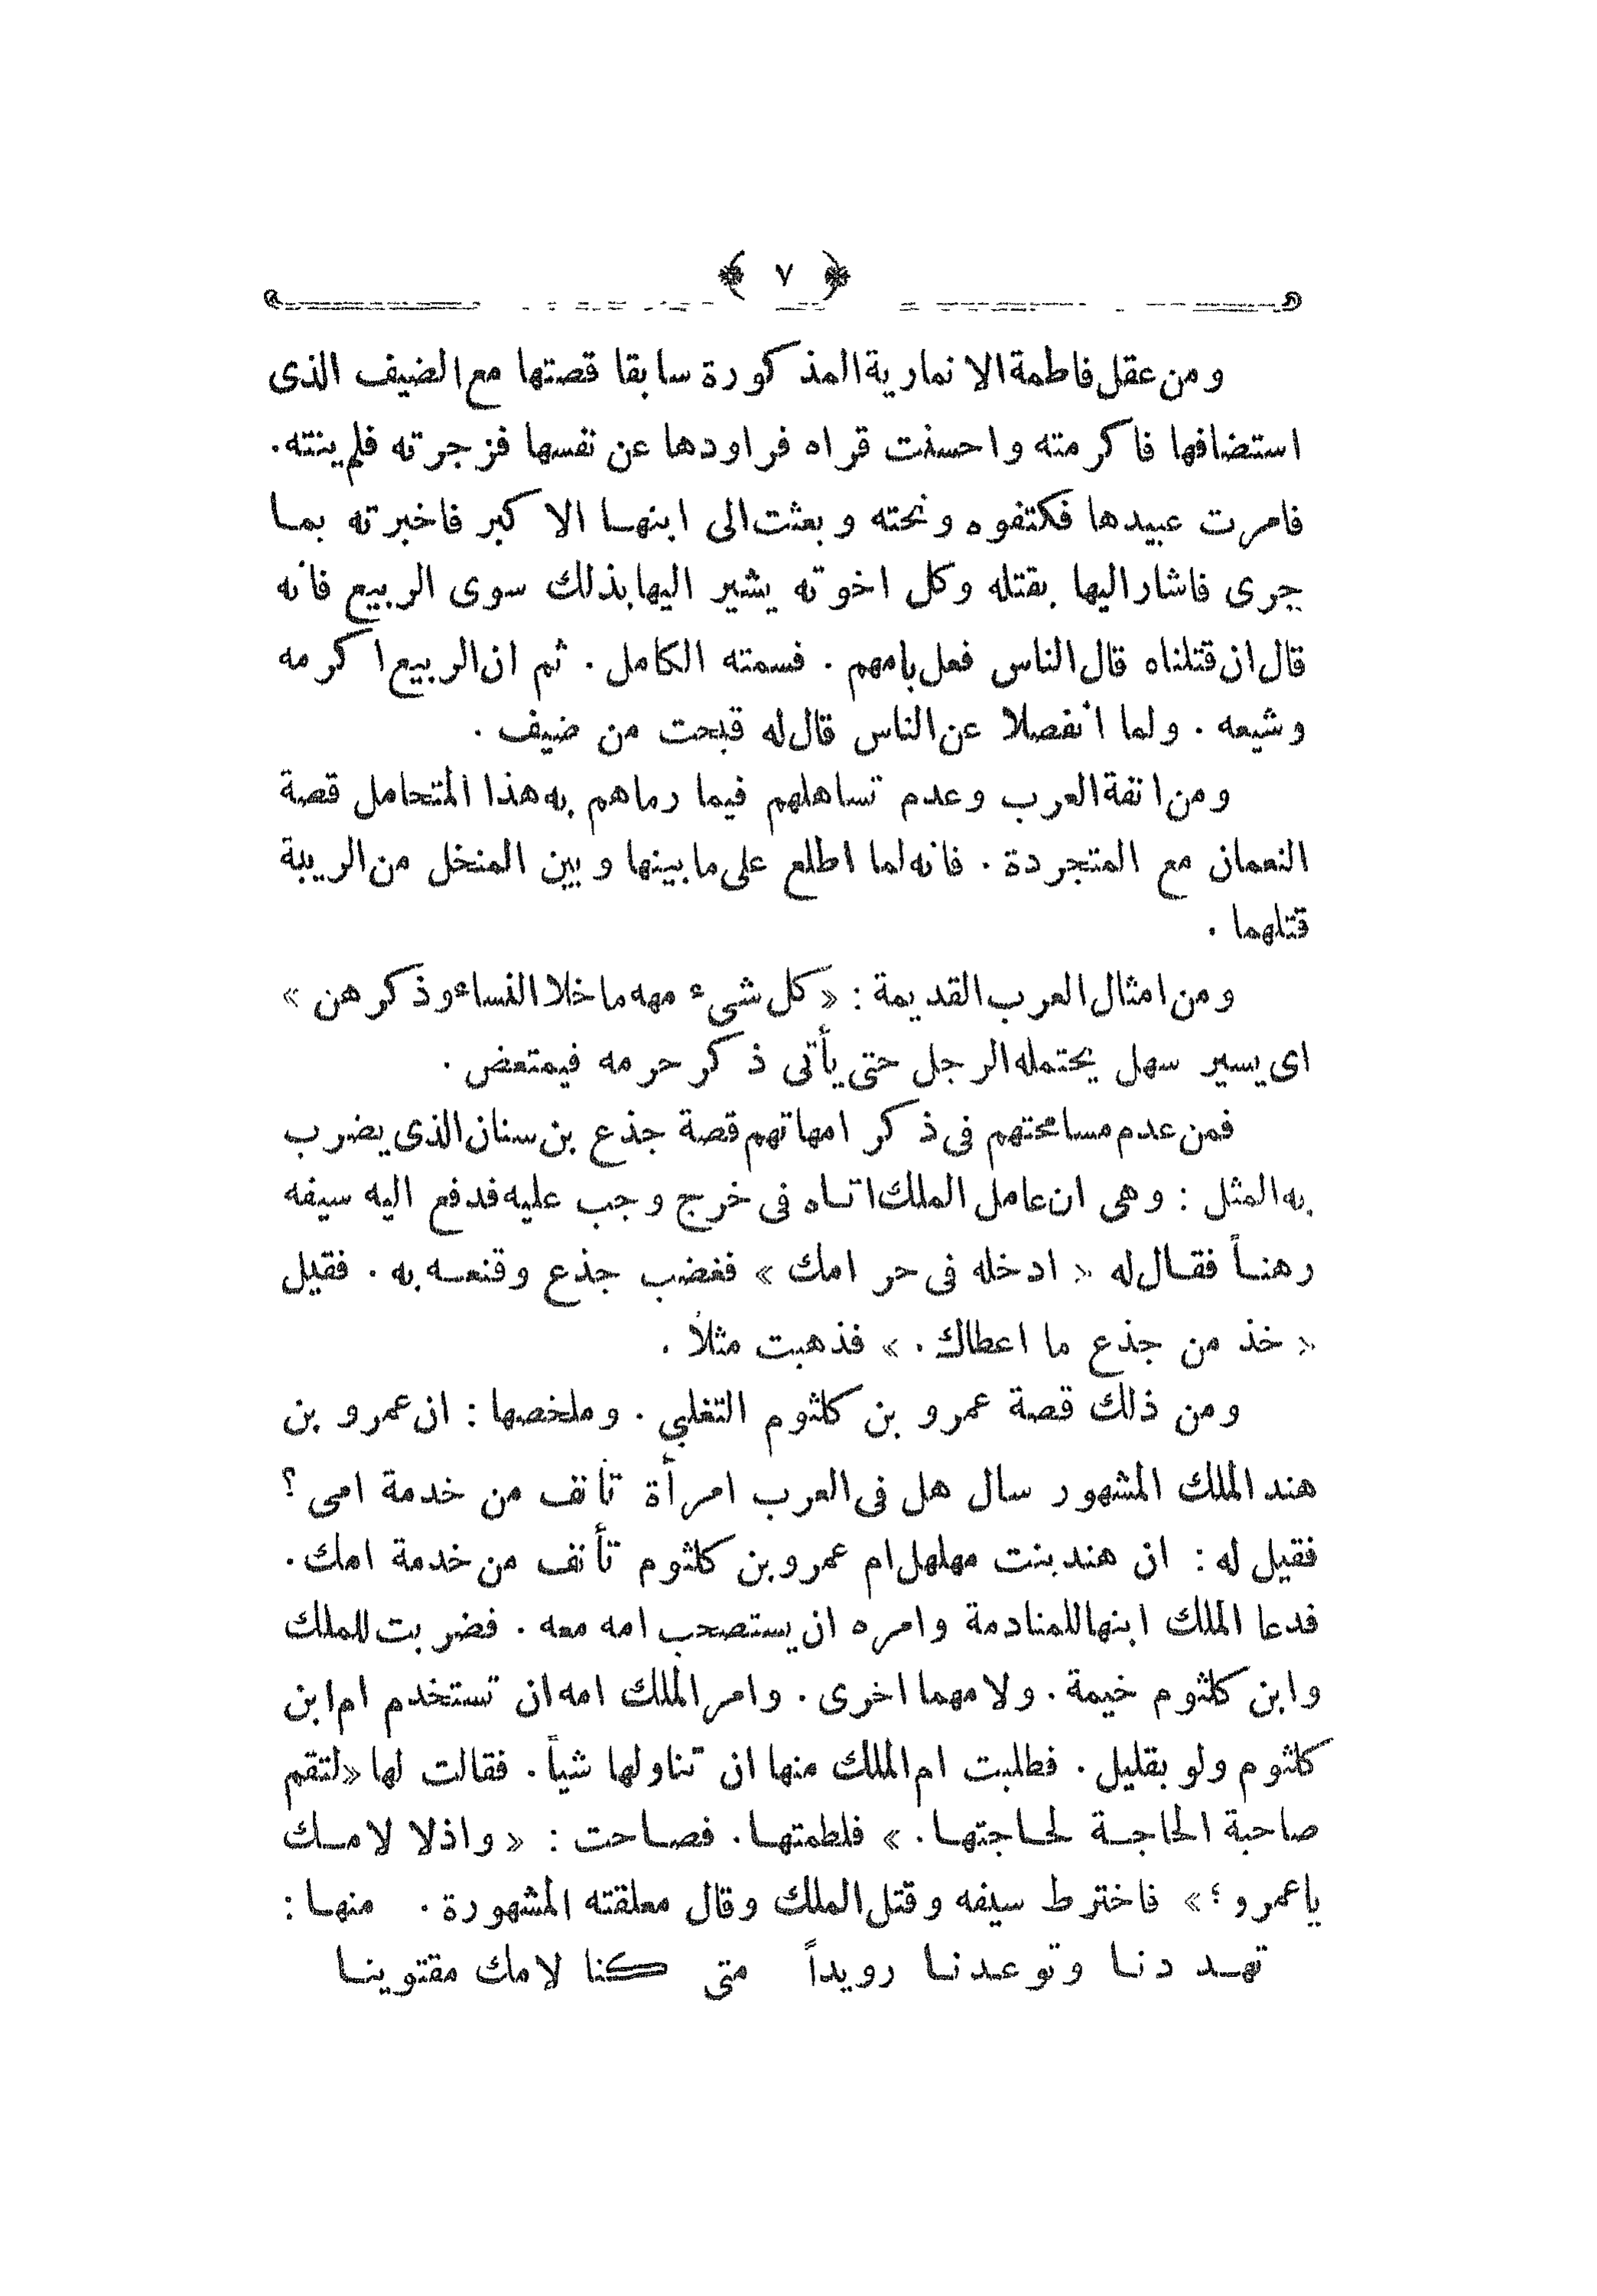 ﴿ ٧ ﴾
ومن عقل فاطمة الانمارية المذكورة سابقا قصتها مع الضيف الذى
استضافها فاكرمته واحسنت قراه فراودها عن نفسها فزجرته فلم ينته.
فامرت عبيدها فكتفوه ونحته وبعثت الى ابنهـا الاكبر فاخبرته بمـا
جرى فاشار اليها بقتله وكل اخوته يشير اليها بذلك سوى الربيع فانه
قال ان قتلناه قال الناس فعل بامهم . فسمته الكامل . ثم ان الربيع اكرمه
وشيعه . ولما انفصلا عن الناس قال له قبحت من ضيف .
ومن انفة العرب وعدم تساهلهم فيما رماهم به هذا المتحامل قصة
النعمان مع المتجردة . فانه لما اطلع على ما بينها وبين المنخل من الريبة
قتلهما .
ومن امثال العرب القديمة : « كل شىء مهه ما خلا النساء وذكرهن »
اى يسير سهل يحتمله الرجل حتى يأتى ذكر حرمه فيمتعض .
فمن عدم مسامحتهم فى ذكر امهاتهم قصة جذع بن سنان الذى يضرب
به المثل : وهى ان عامل الملك اتـاه فى خرج وجب عليه فدفع اليه سيفه
رهنـاً فقـال له « ادخله فى حر امك » فغضب جذع وقنعـه به . فقيل
« خذ من جذع ما اعطاك . » فذهبت مثلاً .
ومن ذلك قصة عمرو بن كلثوم التغلبي . وملخصها : ان عمرو بن
هند الملك المشهور سال هل فى العرب امرأة تأنف من خدمة امى ؟
فقيل له : ان هند بنت مهلهل ام عمرو بن كلثوم تأنف من خدمة امك .
فدعا الملك ابنها للمنادمة وامره ان يستصحب امه معه . فضربت للملك
وابن كلثوم خيمة . ولامهما اخرى . وامر الملك امه ان تستخدم ام ابن
كلثوم ولو بقليل . فطلبت ام الملك منها ان تناولها شيأً . فقالت لها «لتقم
صاحبة الحاجـة لحـاجتهـا . » فلطمتهـا . فصـاحت : « واذلا لامـك
ياعمرو ؛ » فاخترط سيفه وقتل الملك وقال معلقته المشهورة . منهـا :
تهـددنـا وتوعـدنـا رويداً متى كنا لامك مقتوينـا